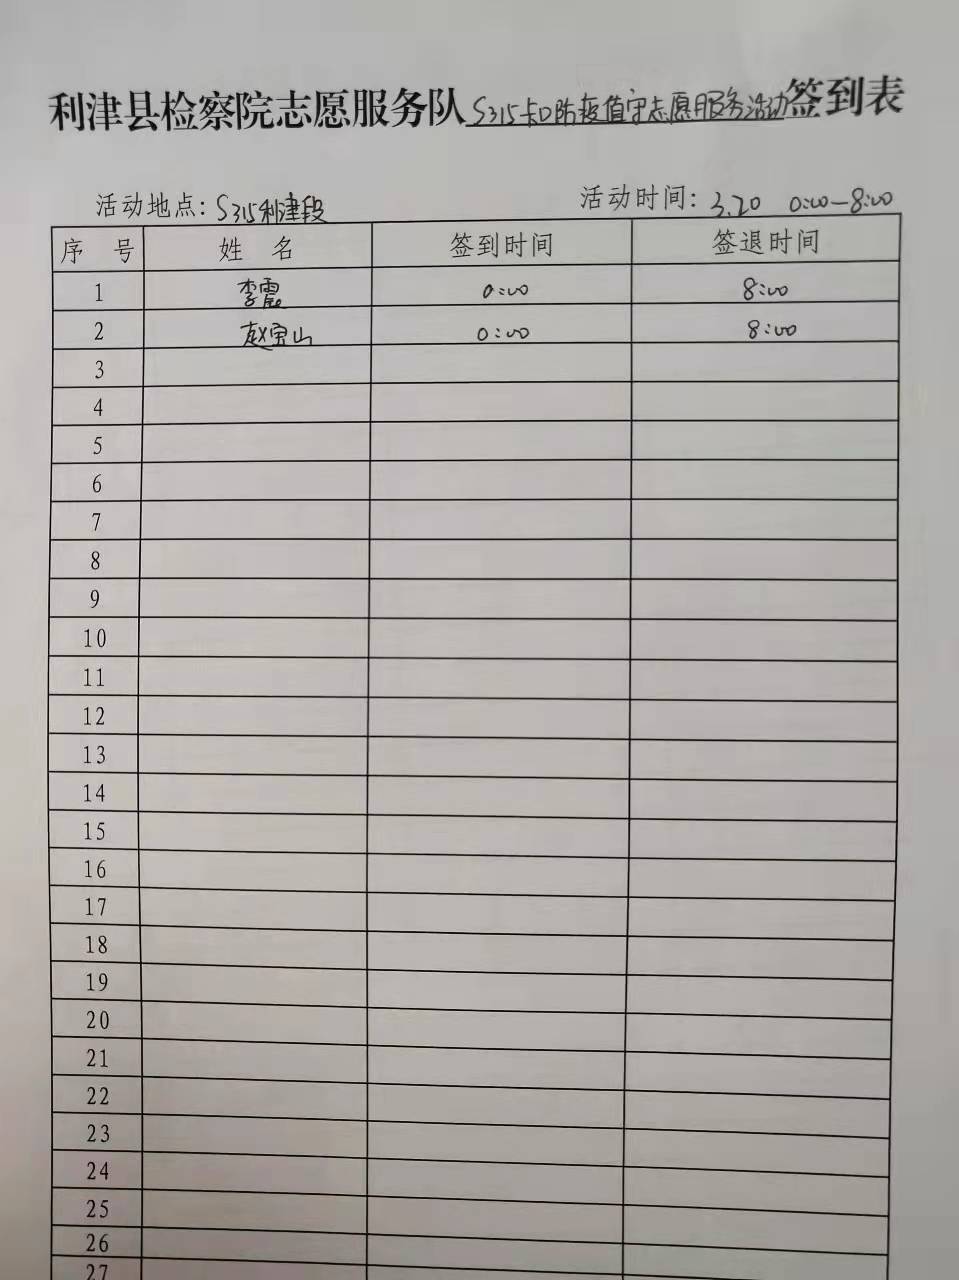 利津县检察院志愿服务队S315卡口防疫值守志愿服务活动签到表
活动地点：S315利津段 活动时间：3.20 0:00-8:00
序 号 姓 名 签到时间 签退时间
1 李震 0:00 8:00
2 赵宝山 0:00 8:00
3
4
5
6
7
8
9
10
11
12
13
14
15
16
17
18
19
20
21
22
23
24
25
26
27